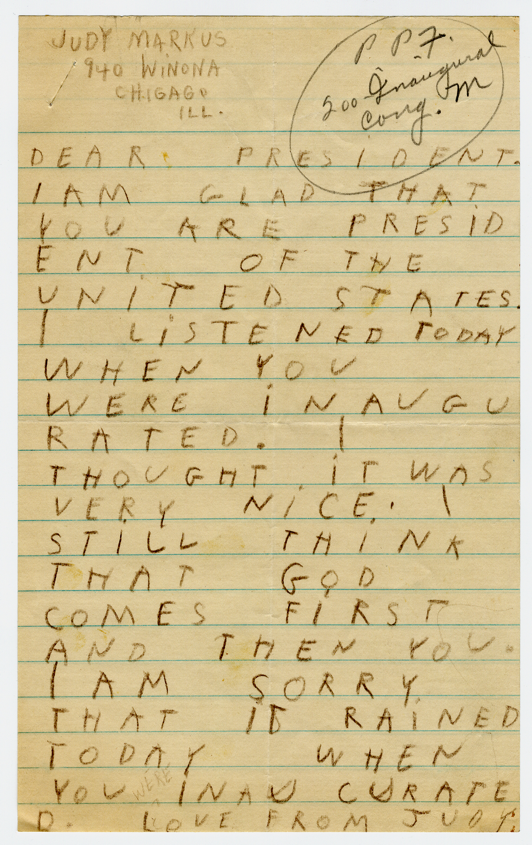 JUDY MARKUS
940 WINONA
CHIGAGO
ILL.
P P F.
200 Inaugural
Cong. M
DEAR PRESIDENT.
I AM GLAD THAT
YOU ARE PRESID
ENT OF THE
UNITED STATES.
I LiSTENED TODAY
WHEN YOU
WERE iNAUGU
RATED. I
THOUGHT iT WAS
VERY NICE. I
STILL THINK
THAT GOD
COMES FIRST
AND THEN YOU.
I AM SORRY
THAT IT RAINED
TODAY WHEN
YOU WERE INAU CURATE
D. LOVE FROM JUDY.